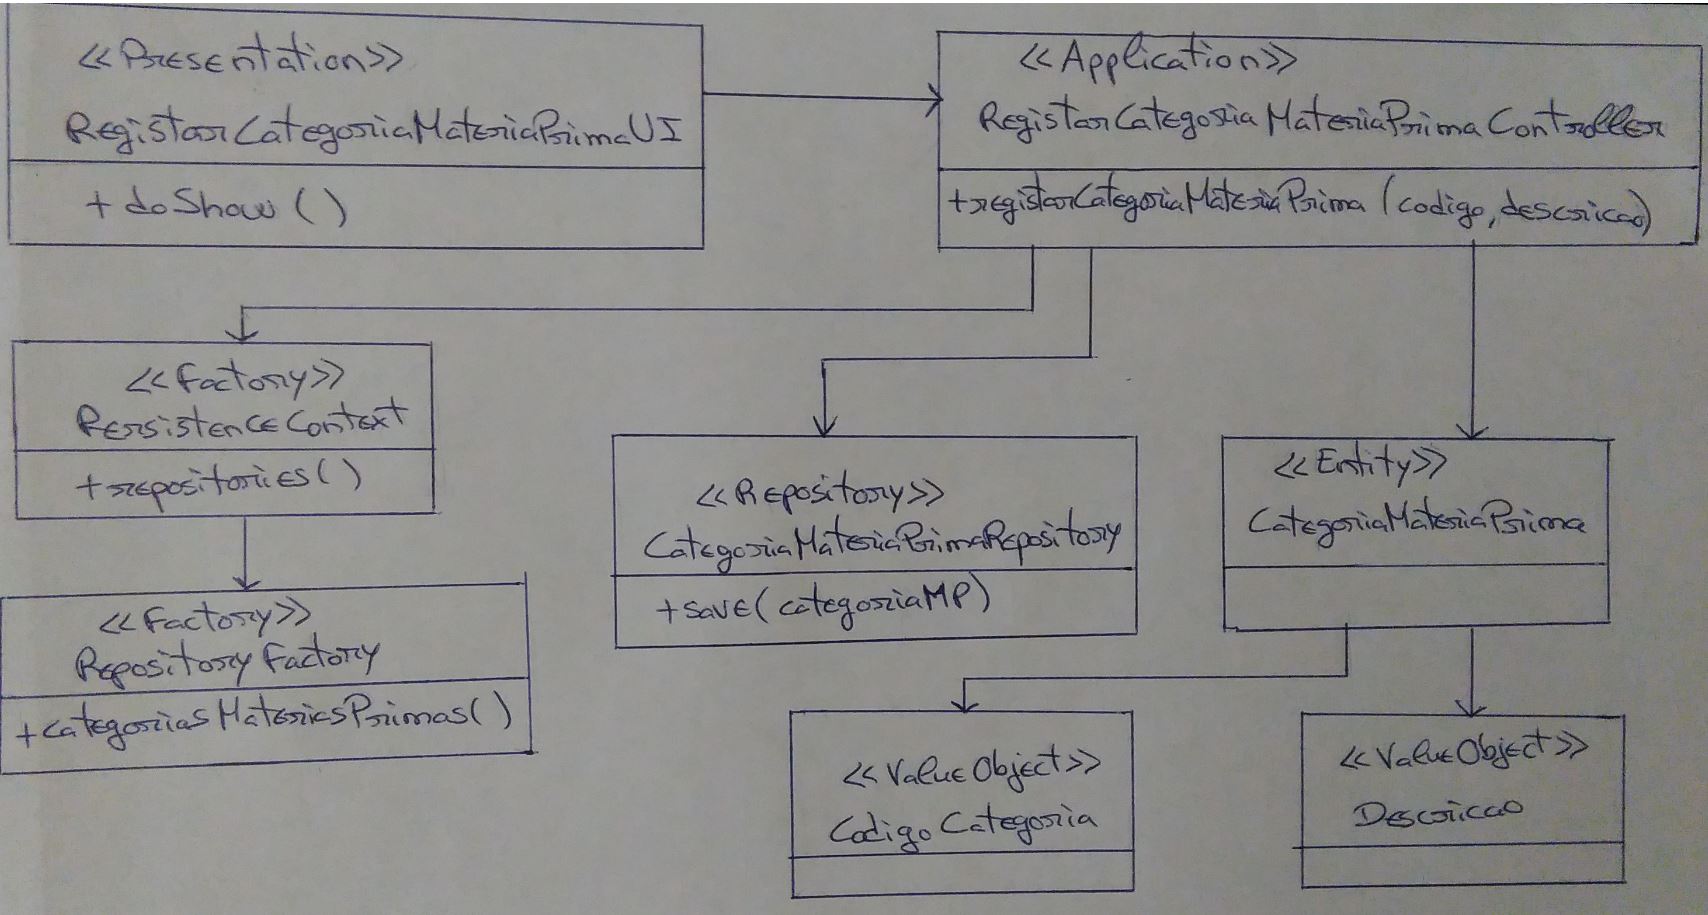 <<Presentation>>
RegistarCategoriaMateriaPrimaUI
+ doShow ( )
<<Application>>
RegistarCategoriaMateriaPrimaController
+registarCategoriaMateriaPrima (codigo, descricao)
<<Factory>>
PersistenceContext
+repositories( )
<<Repository>>
CategoriaMateriaPrimaRepository
+save(categoriaMP)
<<Entity>>
CategoriaMateriaPrima
<<Factory>>
RepositoryFactory
+categoriasMateriasPrimas( )
<<ValueObject>>
CodigoCategoria
<<ValueObject>>
Descricao